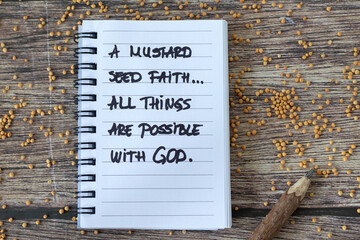 A MUSTARD
SEED FAITH...
ALL THINGS
ARE POSSIBLE
WITH GOD.